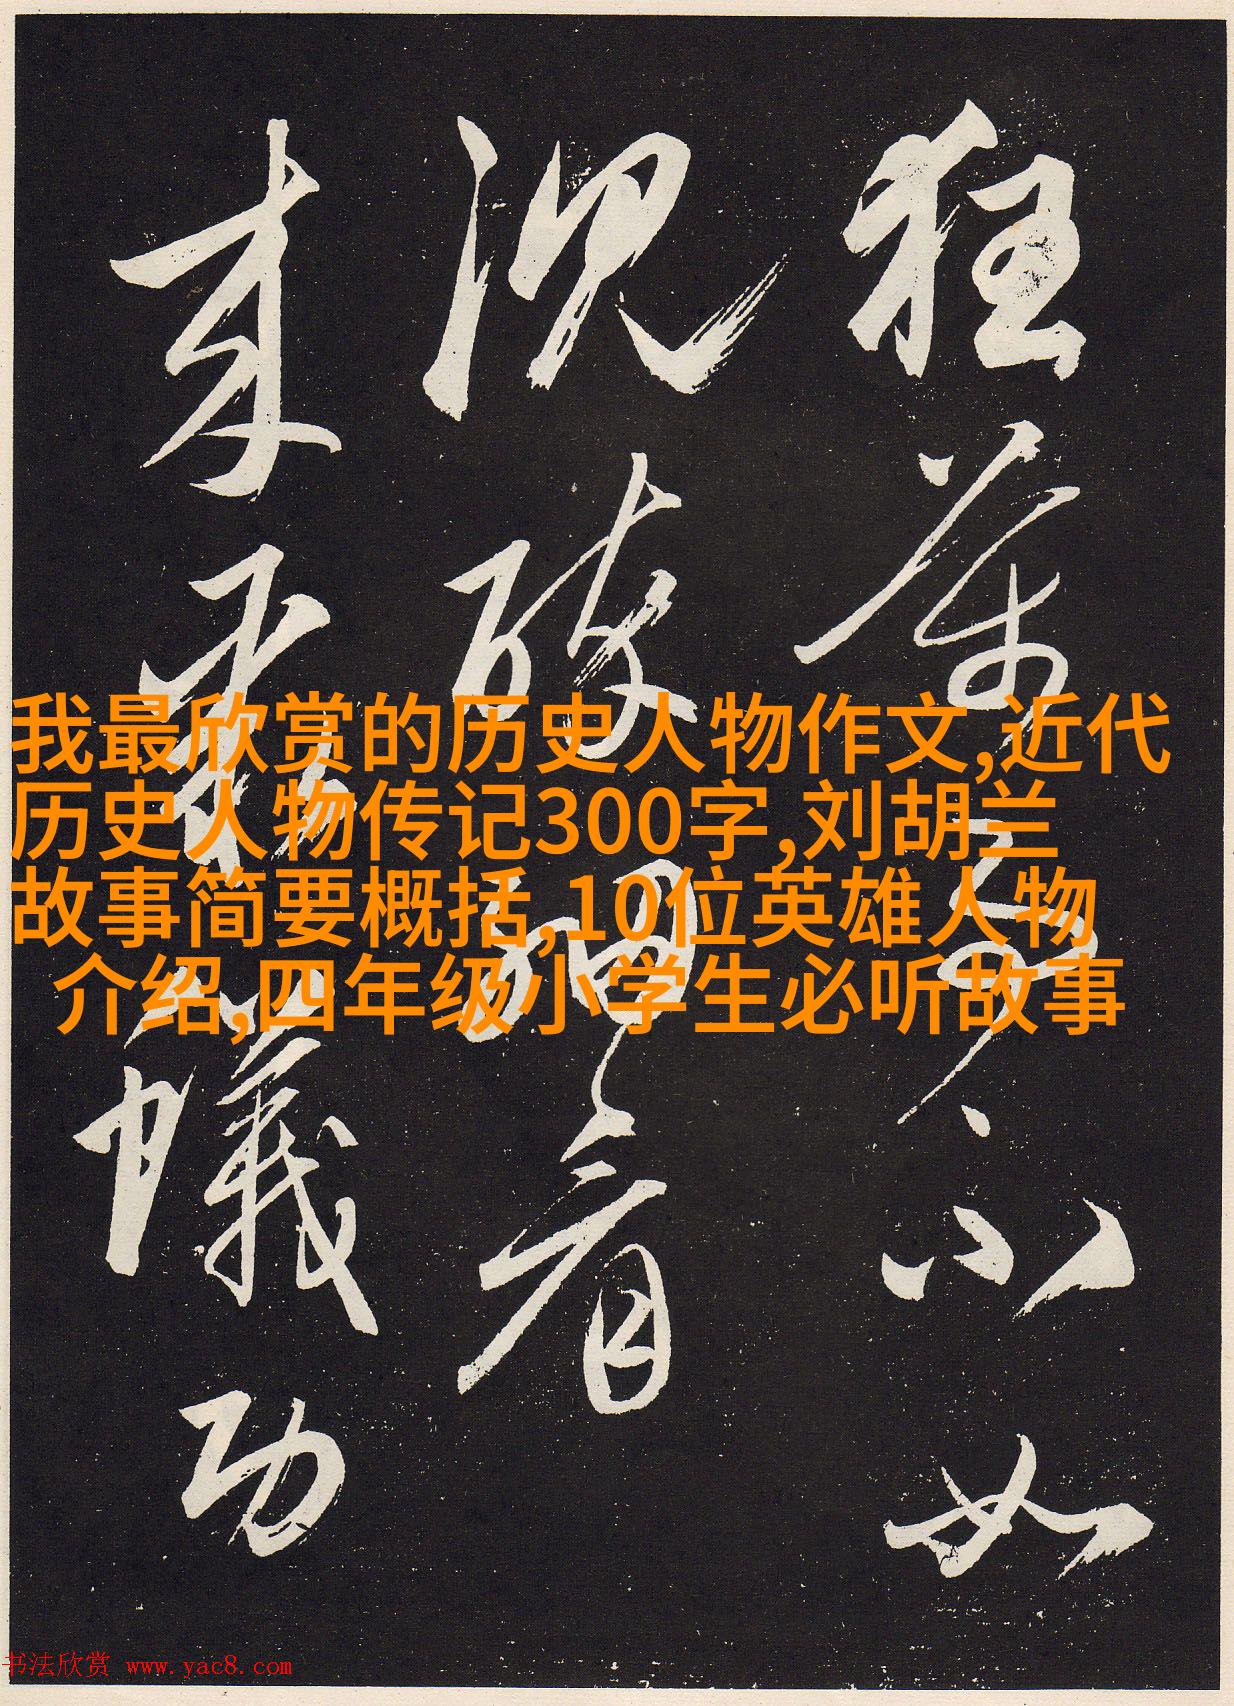 狂 不如
看
蟻功
我最欣赏的历史人物作文,近代
历史人物传记300字,刘胡兰
故事简要概括,10位英雄人物
介绍,四年级小学生必听故事
书法欣赏 www.yac8.com